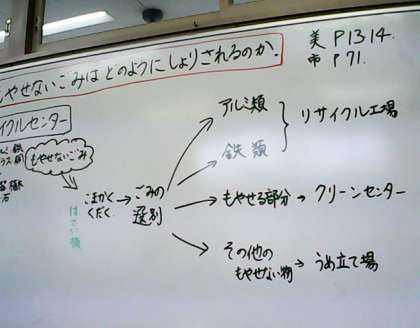 もやせないごみはどのようにしょりされるのか.
美 P1314.
市 P71.
イクルセンター
もやせないごみ
はさい機
こまかく
くだく.
ごみの
選別
アルミ類
鉄類
リサイクル工場
もやせる部分
クリーンセンター
その他の
もやせない物
うめ立て場